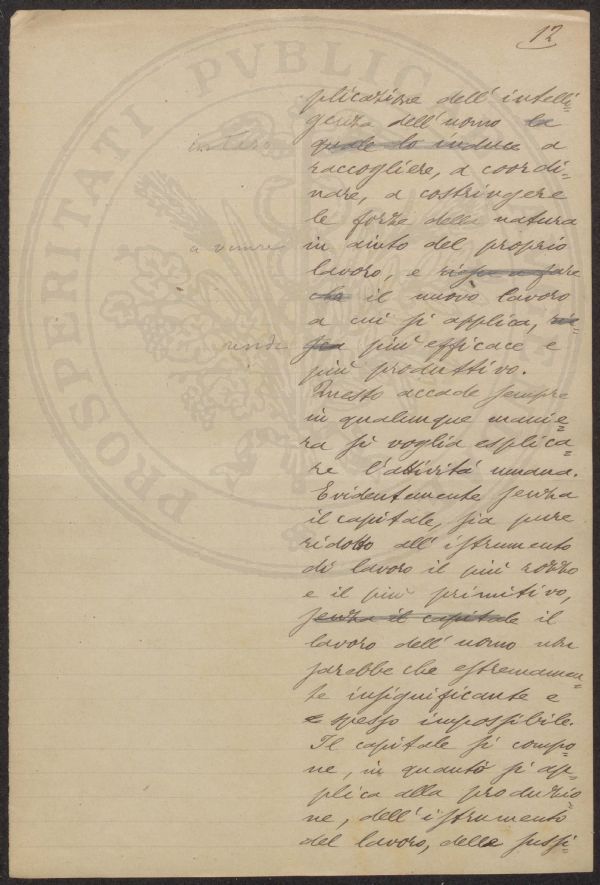 12
plicazione dell'intelli=
genza dell'uomo la
intesa quale lo induce a
raccogliere, a coordi=
nare, a costringere
le forze della natura
a venire in aiuto del proprio
lavoro, e riesce a fare
che il nuovo lavoro
a cui si applica,
rende più efficace e
più produttivo.
Questo accade sempre
in qualunque manie=
ra si voglia esplica=
re l'attività umana.
Evidentemente senza
il capitale, sia pure
ridotto all'istrumento
di lavoro il più rozzo
e il più primitivo,
senza il capitale il
lavoro dell'uomo non
sarebbe che estremamen=
te insignificante e
e spesso impossibile.
Il capitale si compo=
ne, in quanto si ap=
plica alla produzio=
ne, dell'istrumento
del lavoro, delle sussi=
PROSPERITATI PVBLIC